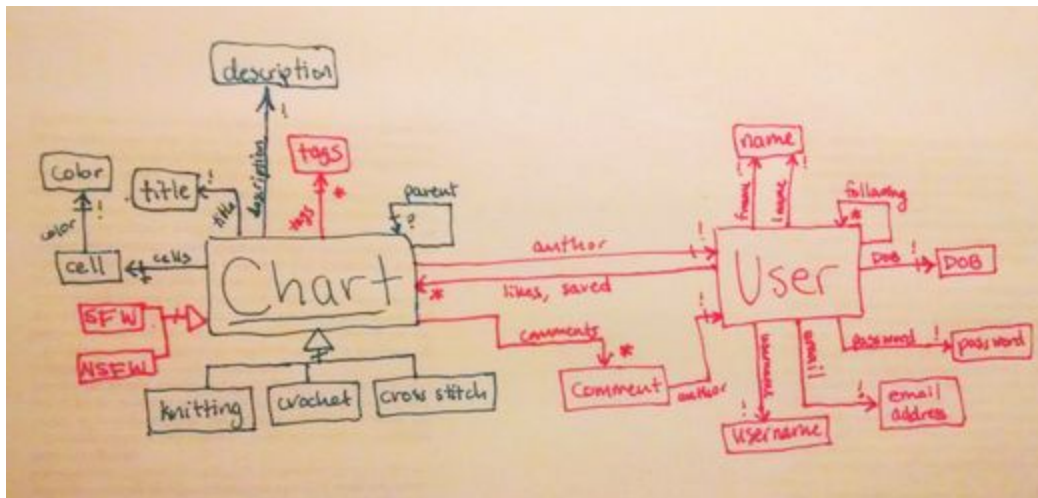 description
!
description
tags
*
tags
color
!
color
title
!
title
parent
?
cell
cells
Chart
SFW
NSFW
knitting
crochet
cross stitch
author
!
likes, saved
*
comments
*
Comment
author
!
name
!
!
fname
lname
following
*
User
DOB
!
DOB
password
!
password
email
!
email
address
username
!
username